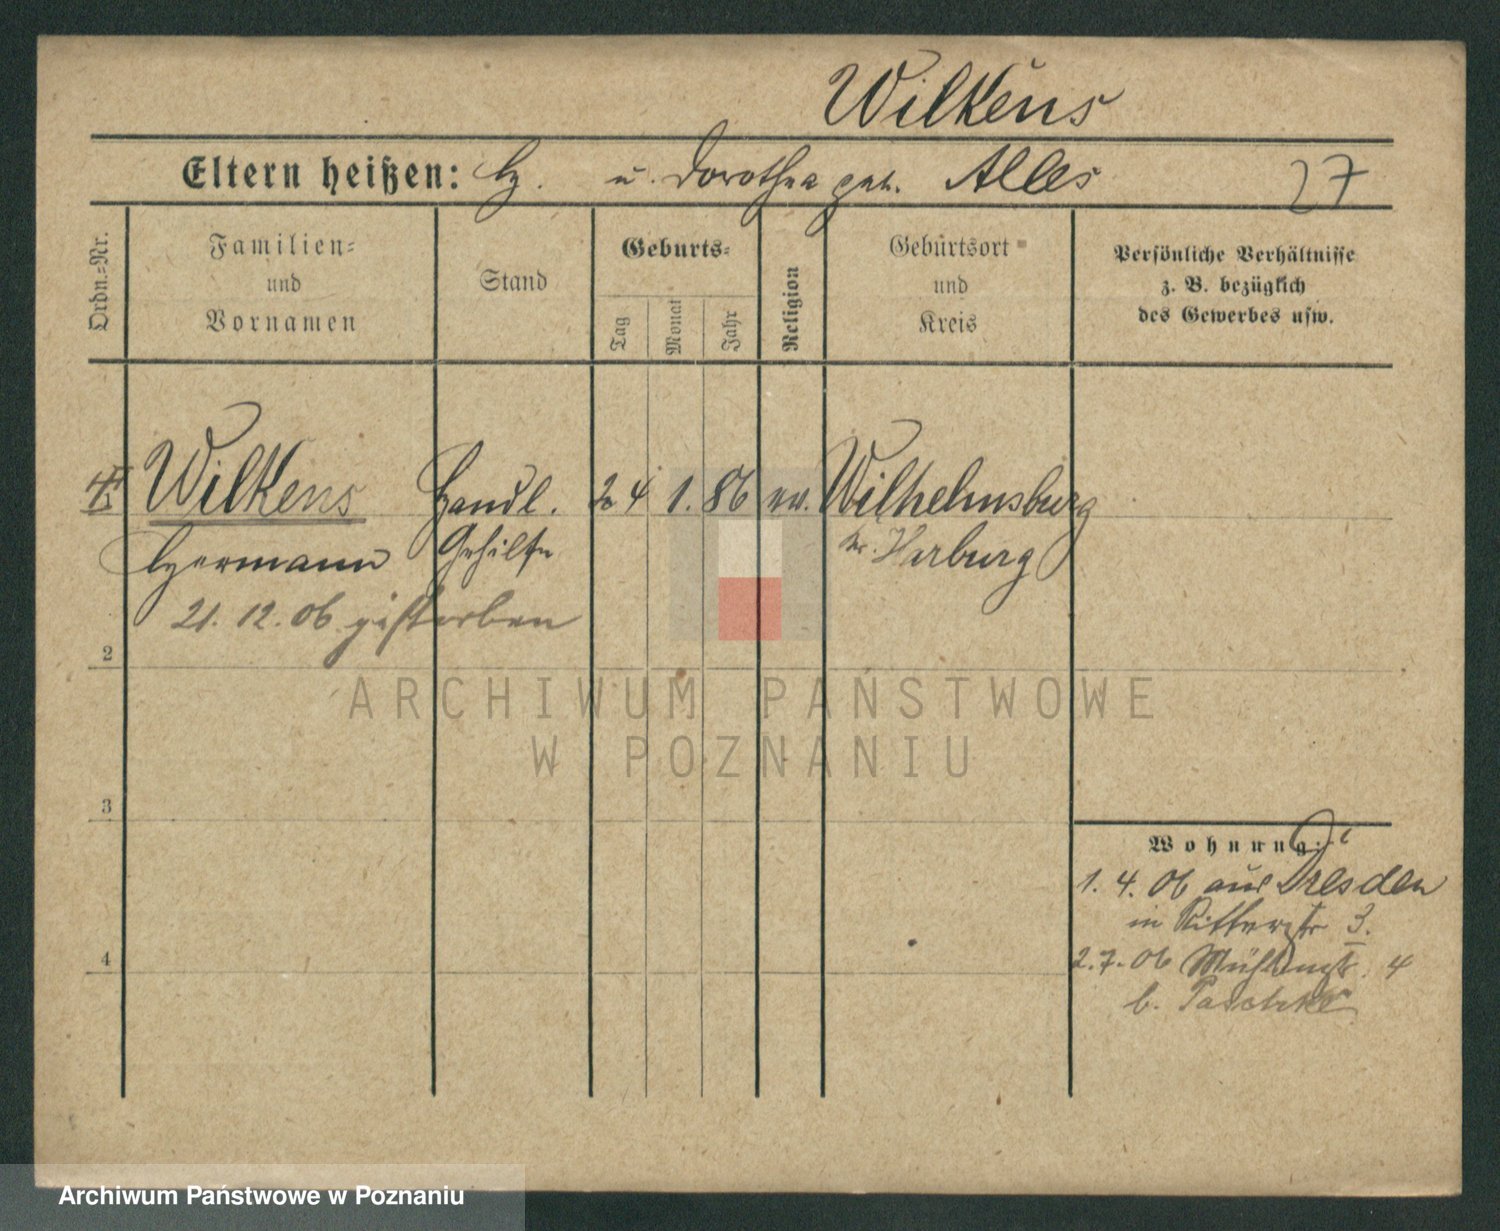 Wilkens
Eltern heißen: H. u. Dorothea geb. Alles 27
Ordn.-Nr.
Familien-
und
Vornamen
Stand
Geburts-
Tag
Monat
Jahr
Religion
Geburtsort
und
Kreis
Persönliche Verhältnisse
z. B. bezüglich
des Gewerbes usw.
Wilkens Handl. 24 1. 86 ev. Wilhelmsburg
Hermann Gehilfe Kr. Harburg
21. 12. 06 gestorben
2
ARCHIWUM PAŃSTWOWE
W POZNANIU
3
Wohnung:
1. 4. 06 aus Dresden
in Ritterstr 3.
4
2. 7. 06 Mühlenstr. 4
b. Paschke
Archiwum Państwowe w Poznaniu